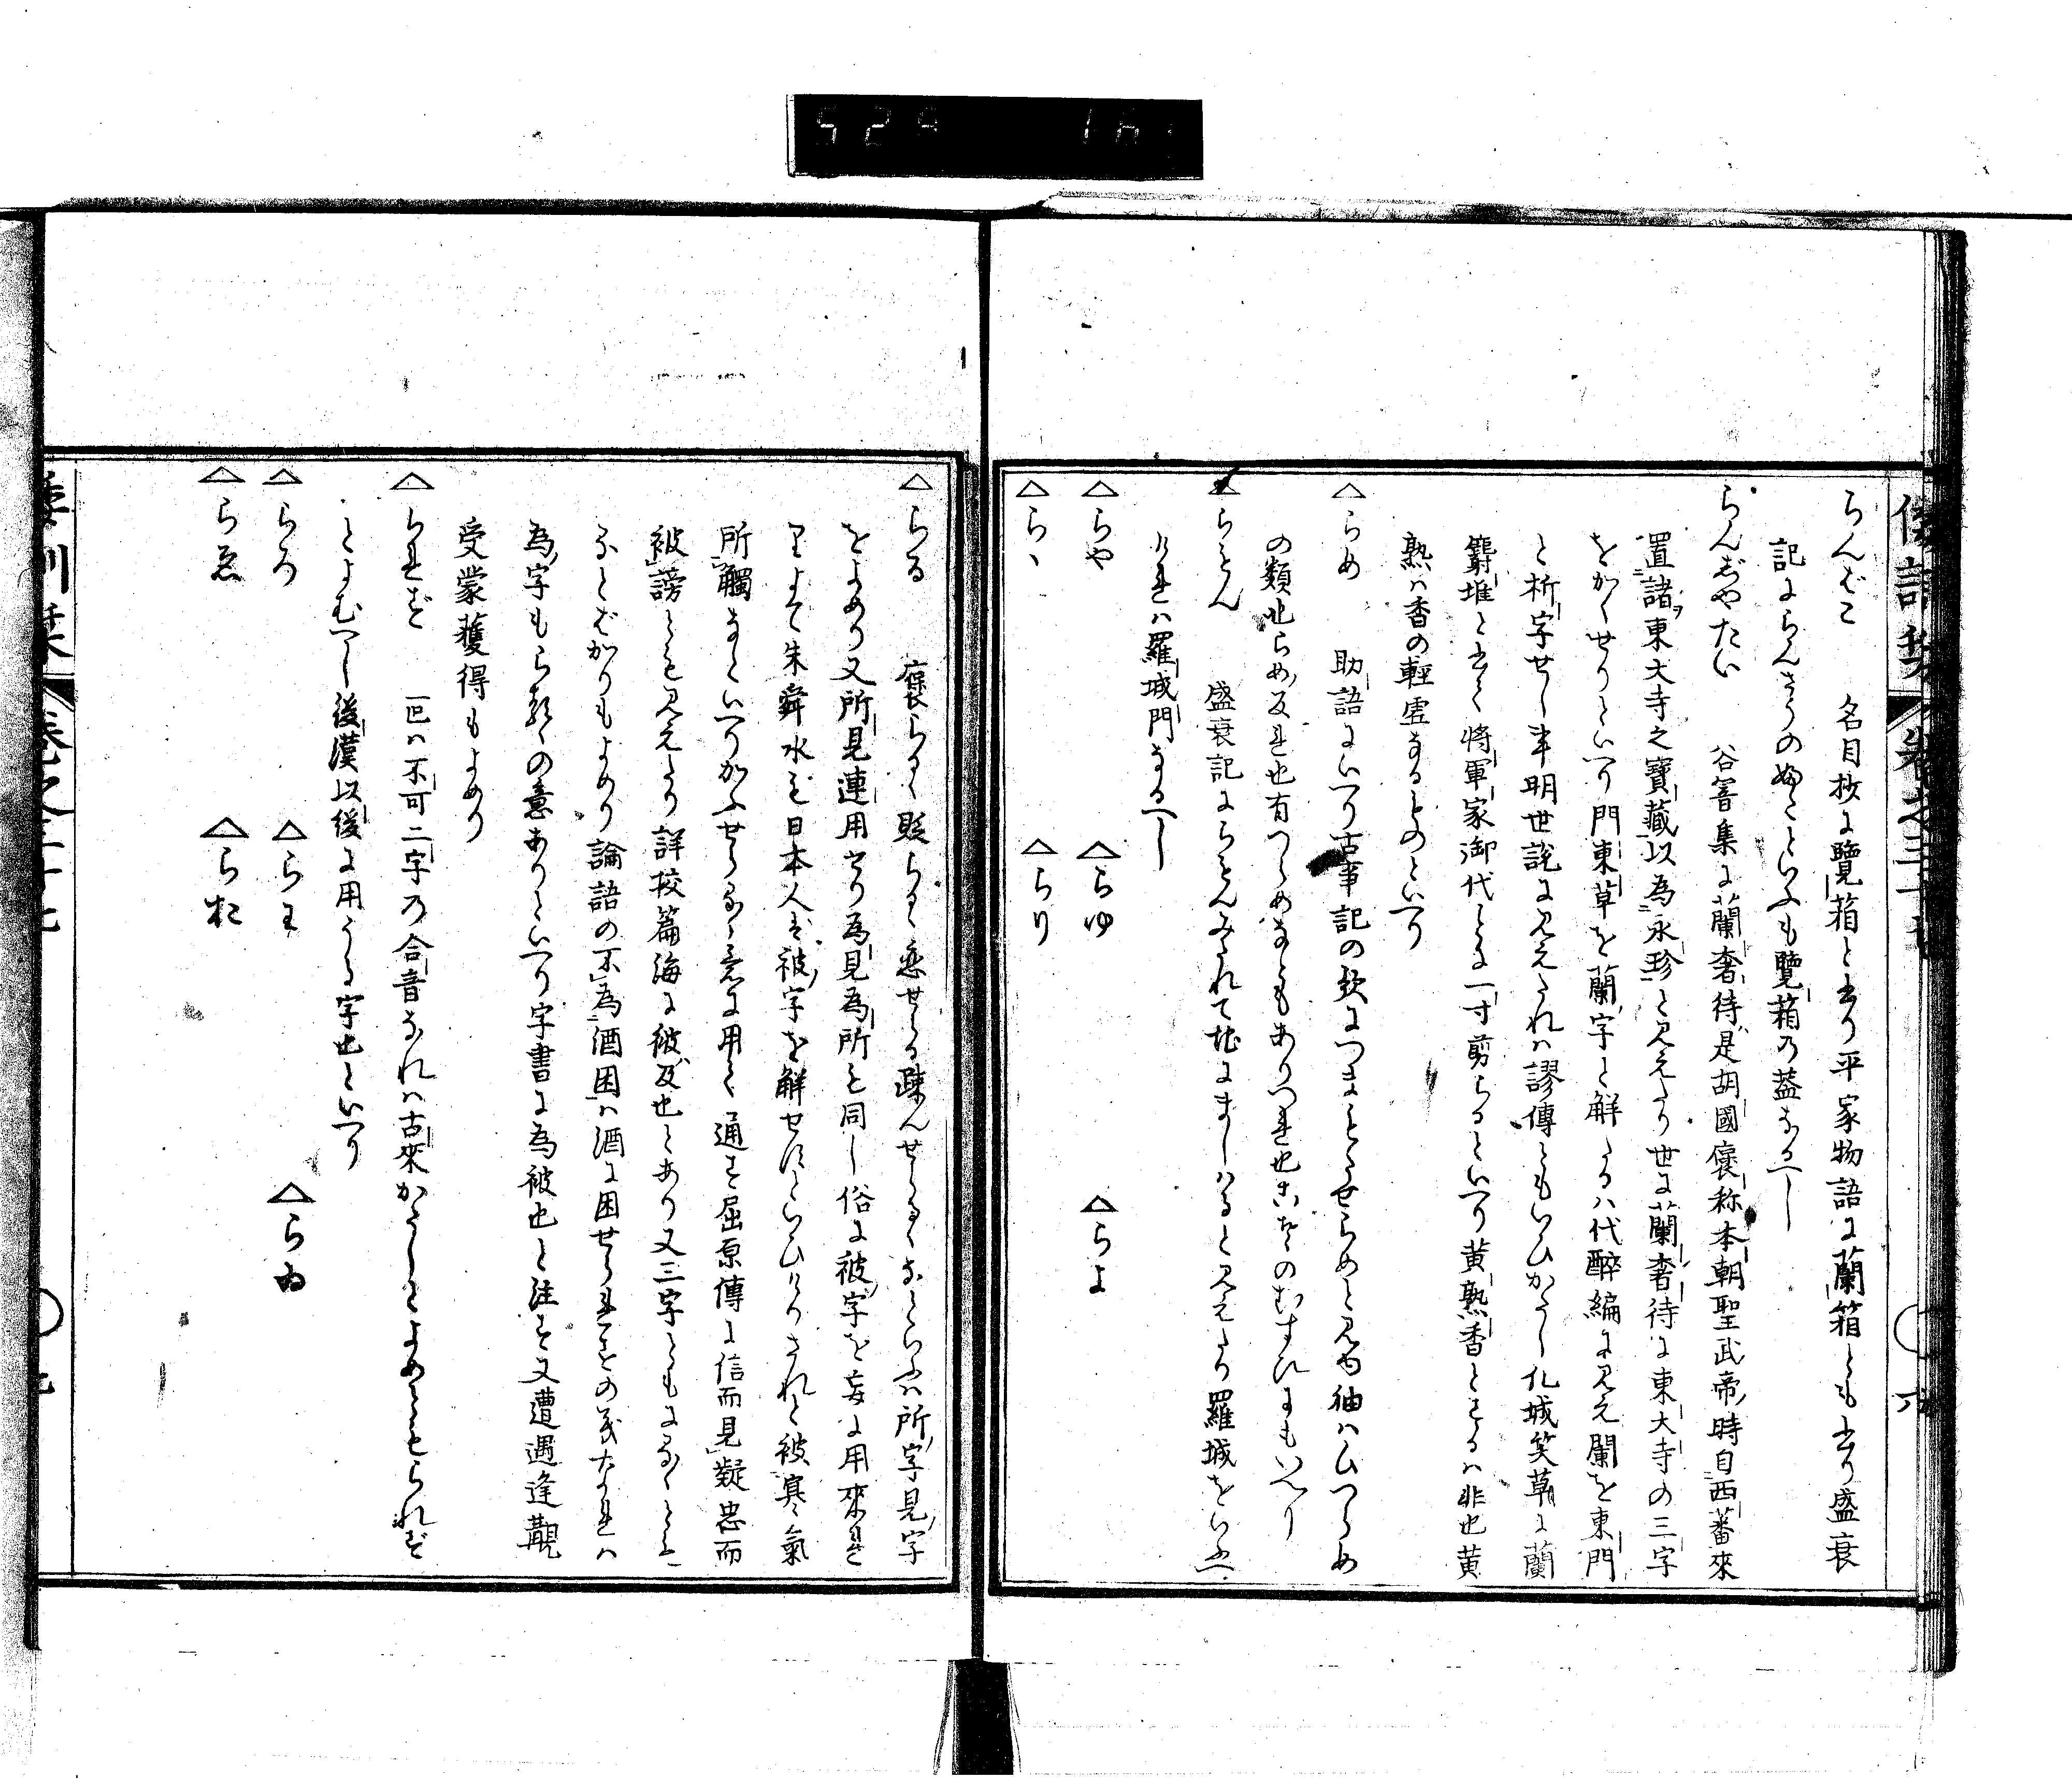 らんばこ　名目抄に覽箱と書り平家物語に蘭箱とも書り盛衰
記にらんさうのふたといふも覽箱の葢なるへし
らんじやたい　谷響集に蘭奢待是胡國襃称本朝聖武帝時自西蕃來
置諸東大寺之寶藏以為永珍と見えたり世に蘭奢待に東大寺の三字
をかくせりといへり門東草を蘭字と解たるハ代醉編に見え闌を東門
と析字せし事明世説に見えたれハ謬傳ともいひかたし化城笑草に蘭
麝堆と書く將軍家御代ときに一寸剪らるといへり黄熟香とするハ非也黄
熟ハ香の輕虚なるものといへり
△らめ　助語にいへり古事記の歌につまときせらめと見ゆ袖ハひつらめ
の類也らめ反れ也有つらめなともありつれ也こそのむすひにもいへり
△らもん　盛衰記にらもんみたれて地にましハると見えたり羅城をいふへ
けれハ羅城門なるへし
△らや　△らゆ　△らよ
△らヽ　△らり
△らる　襃らるヽ貶らるヽ恋せらる疎んせらるヽなといふハ所字見字
をよめり又所見連用せり為見為所も同し俗に被字を妄に用來れる
によて朱舜水も日本人ハ被字を解せすといひけりされと被寒氣
所觸なといへりかふせらるヽ意に用て通す屈原傳に信而見疑忠而
被謗とも見えたり詳挍篇海に被ハ及也とあり又三字ともにるヽとも
るとばかりもよめり論語の不為酒困ハ酒に困せられすの義なれハ
為字もらるヽの意ありといへり字書に為被也と注す又遭遇逢覯
受蒙獲得もよめり
△られず　叵ハ不可二字の合音なれハ古來かたしとよめともられず
とよむへし後漢以後に用うる字也といへり
△らろ　△らわ　△らゐ
△らゑ　△らお